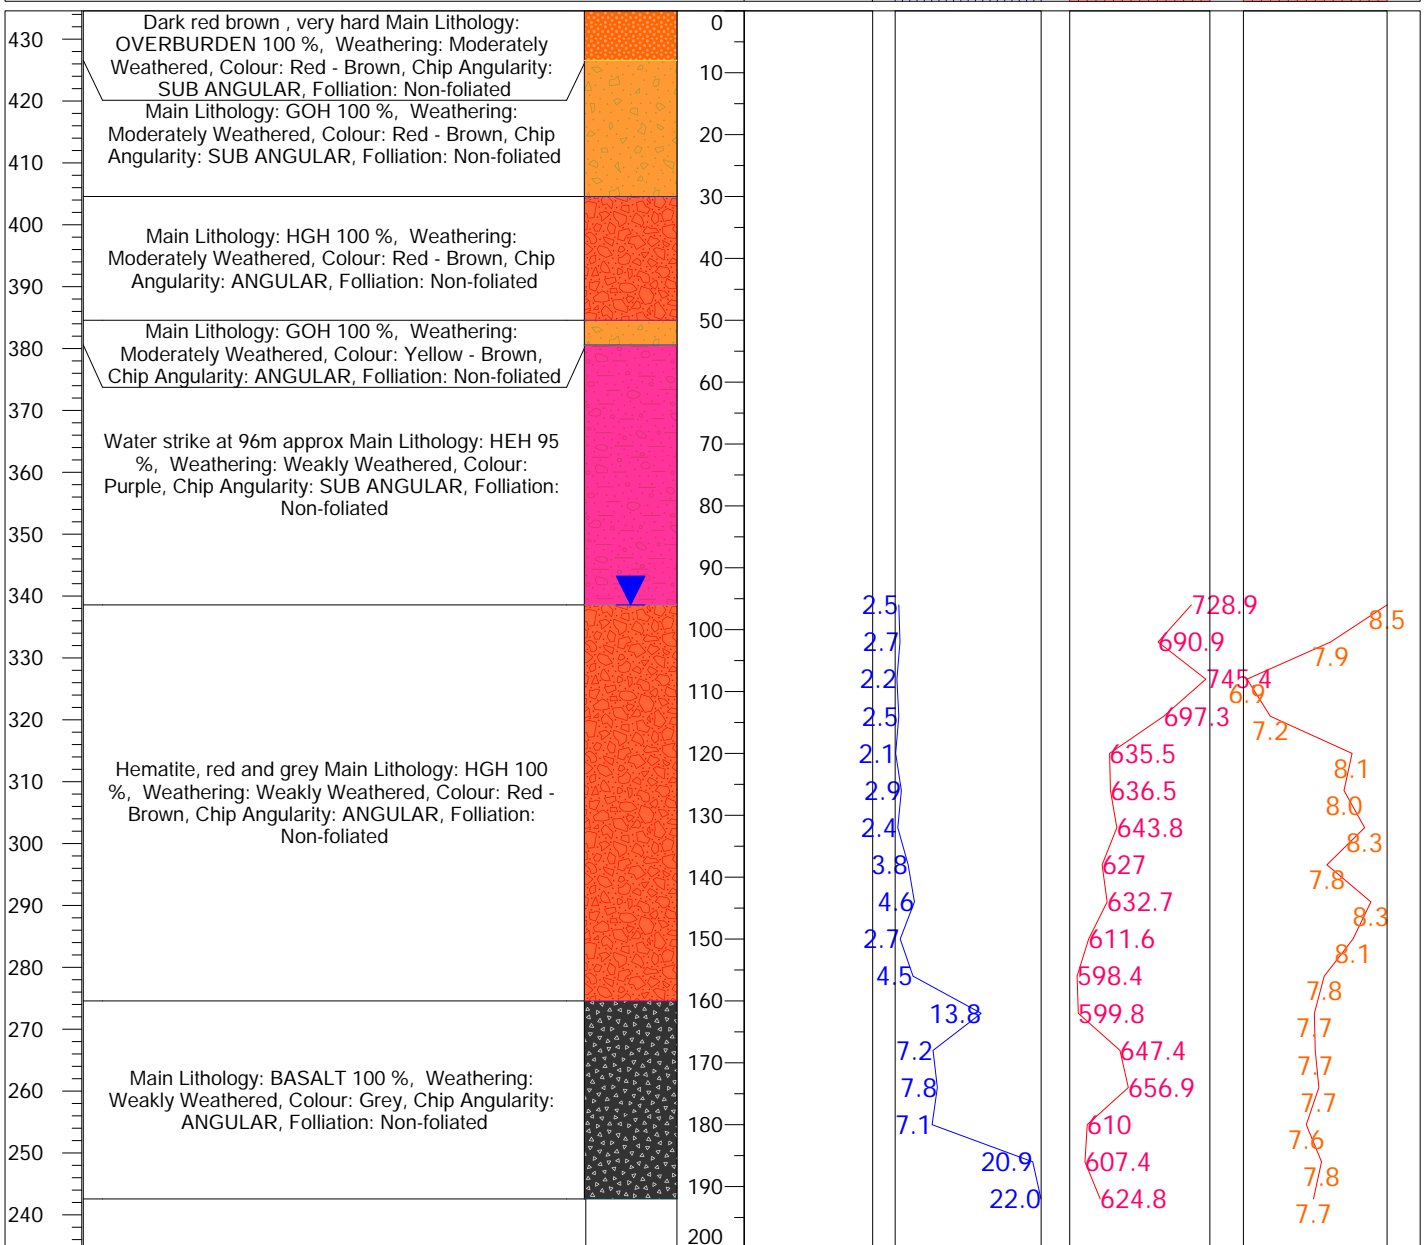 430
420
410
400
390
380
370
360
350
340
330
320
310
300
290
280
270
260
250
240
Dark red brown , very hard Main Lithology:
OVERBURDEN 100 %, Weathering: Moderately
Weathered, Colour: Red - Brown, Chip Angularity:
SUB ANGULAR, Folliation: Non-foliated
Main Lithology: GOH 100 %, Weathering:
Moderately Weathered, Colour: Red - Brown, Chip
Angularity: SUB ANGULAR, Folliation: Non-foliated
Main Lithology: HGH 100 %, Weathering:
Moderately Weathered, Colour: Red - Brown, Chip
Angularity: ANGULAR, Folliation: Non-foliated
Main Lithology: GOH 100 %, Weathering:
Moderately Weathered, Colour: Yellow - Brown,
Chip Angularity: ANGULAR, Folliation: Non-foliated
Water strike at 96m approx Main Lithology: HEH 95
%, Weathering: Weakly Weathered, Colour:
Purple, Chip Angularity: SUB ANGULAR, Folliation:
Non-foliated
Hematite, red and grey Main Lithology: HGH 100
%, Weathering: Weakly Weathered, Colour: Red -
Brown, Chip Angularity: ANGULAR, Folliation:
Non-foliated
Main Lithology: BASALT 100 %, Weathering:
Weakly Weathered, Colour: Grey, Chip Angularity:
ANGULAR, Folliation: Non-foliated
0
10
20
30
40
50
60
70
80
90
100
110
120
130
140
150
160
170
180
190
200
2.5
2.7
2.2
2.5
2.1
2.9
2.4
3.8
4.6
2.7
4.5
13.8
7.2
7.8
7.1
20.9
22.0
728.9
690.9
745.4
697.3
635.5
636.5
643.8
627
632.7
611.6
598.4
599.8
647.4
656.9
610
607.4
624.8
8.5
7.9
6.9
7.2
8.1
8.0
8.3
7.8
8.3
8.1
7.8
7.7
7.7
7.7
7.6
7.8
7.7